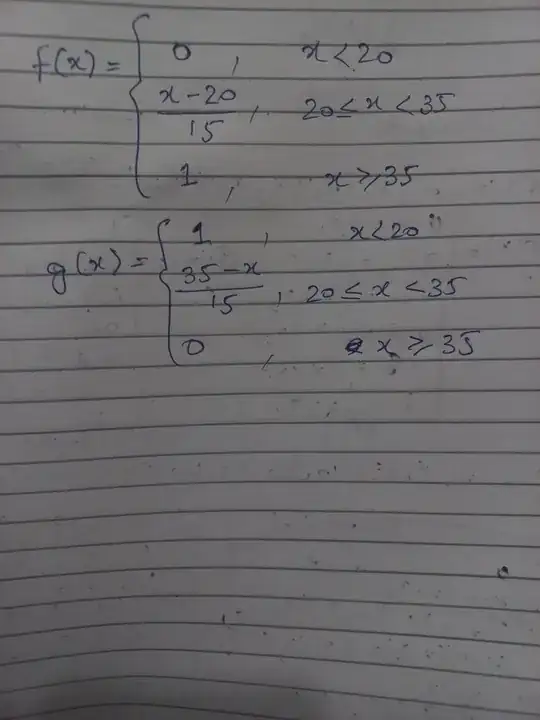 f(x) = { 0 , x < 20
x - 20 / 15 , 20 ≤ x < 35
1 , x ≥ 35
g(x) = { 1 , x < 20
35 - x / 15 , 20 ≤ x < 35
0 , x ≥ 35